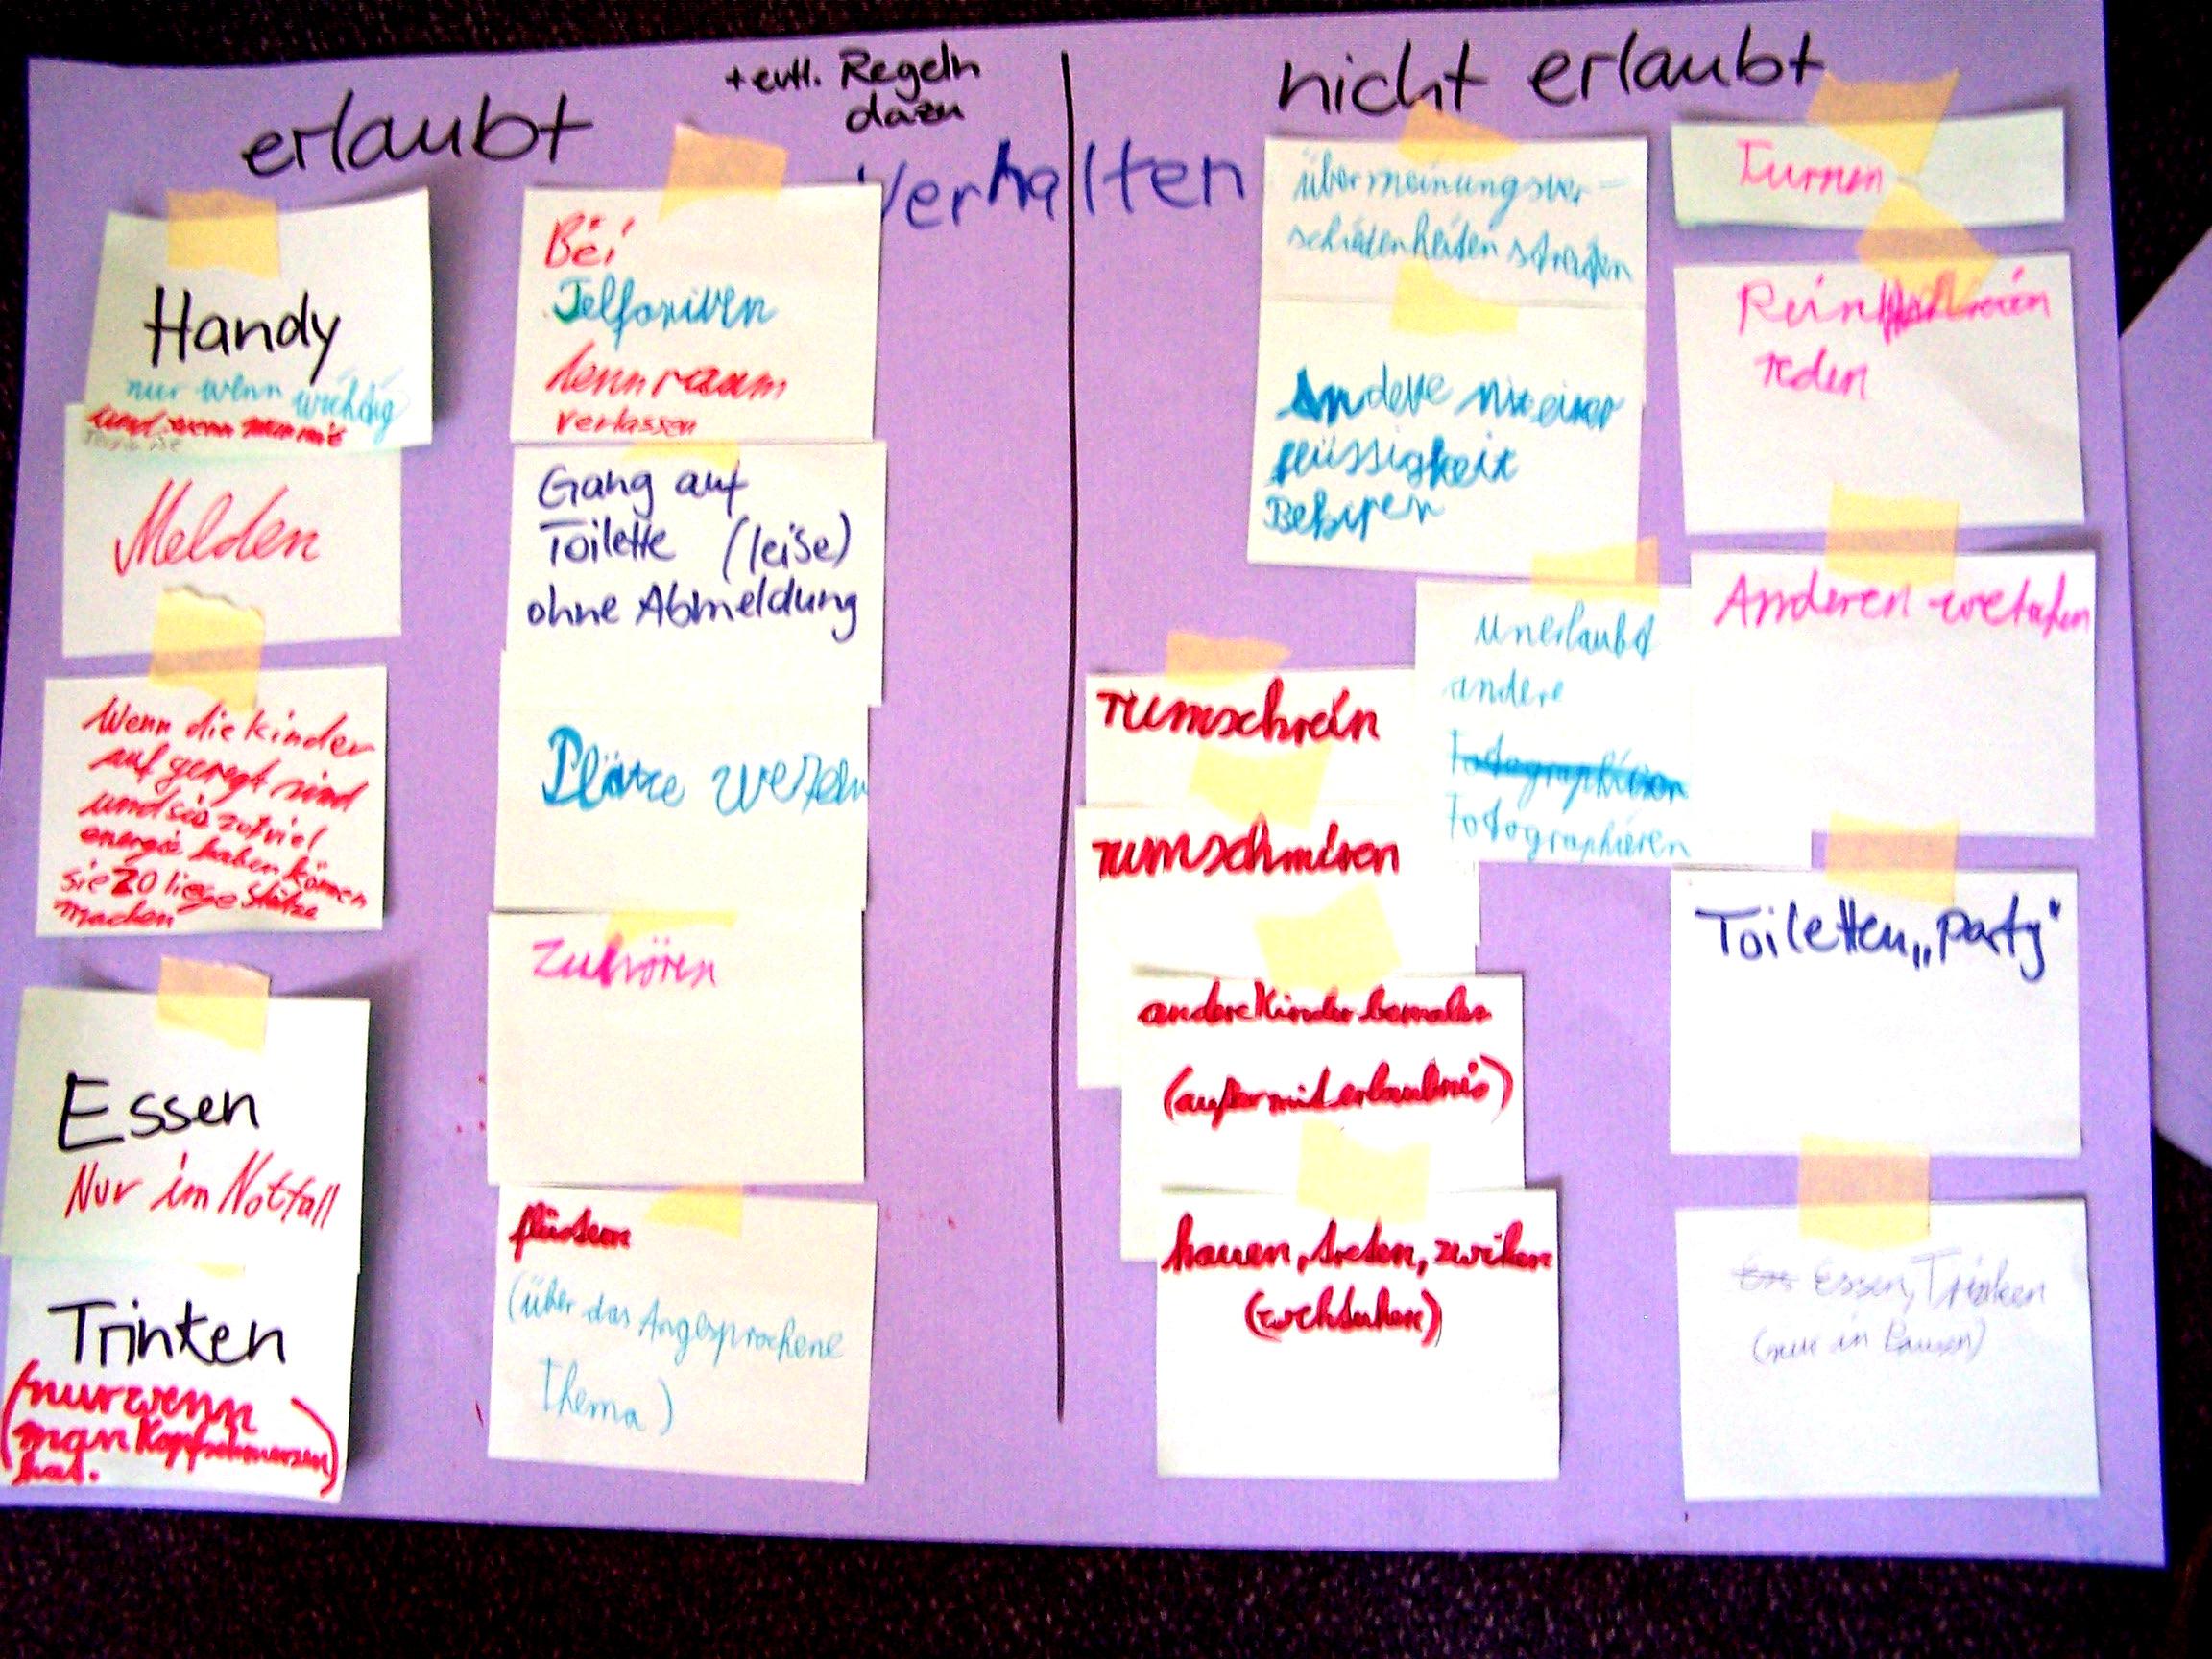 erlaubt
+ evtl. Regeln
dazu
nicht erlaubt
Verhalten
Handy
nur wenn wichtig
und wenn man mit
Melden
Wenn die kinder
auf geregt sind
und sie zu viel
energie haben können
sie 20 liege stütze
machen
Essen
Nur im Notfall
Trinken
(nur wenn
man Kopfschmerzen
hat.)
Bei
lernraum
verlassen
Gang auf
Toilette (leise)
ohne Abmeldung
Plätze
Zuhören
flüstern
(über das Angesprochene
Thema)
über meinungsver-
schiedenheiten streiten
Andere mit einer
flüssigkeit
rumschrein
rumschmiren
andere Kinder bemalen
(außer mit erlaubnis)
hauen, treten, zwiken
unerlaubt
andere
Fotographieren
Turnen
Rein
reden
Anderen
Toiletten„party"
Essen, Trinken
(nur in Pausen)